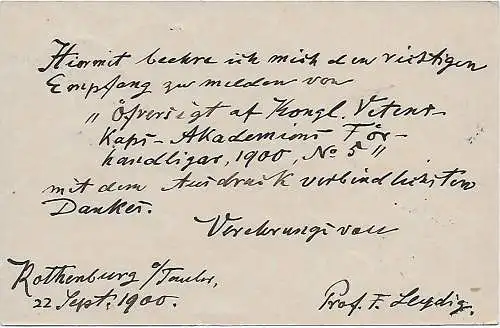 Hiermit beehre ich mich den richtigen
Empfang zu melden von
„ Öfversigt af Kongl. Vetens-
kaps-Akademiens För-
handligar, 1900, No 5 "
mit dem Ausdruck verbindlichsten
Dankes.
Verehrungsvoll
Rothenburg o/Tauber,
22 Sept. 1900.
Prof. F. Leydig.